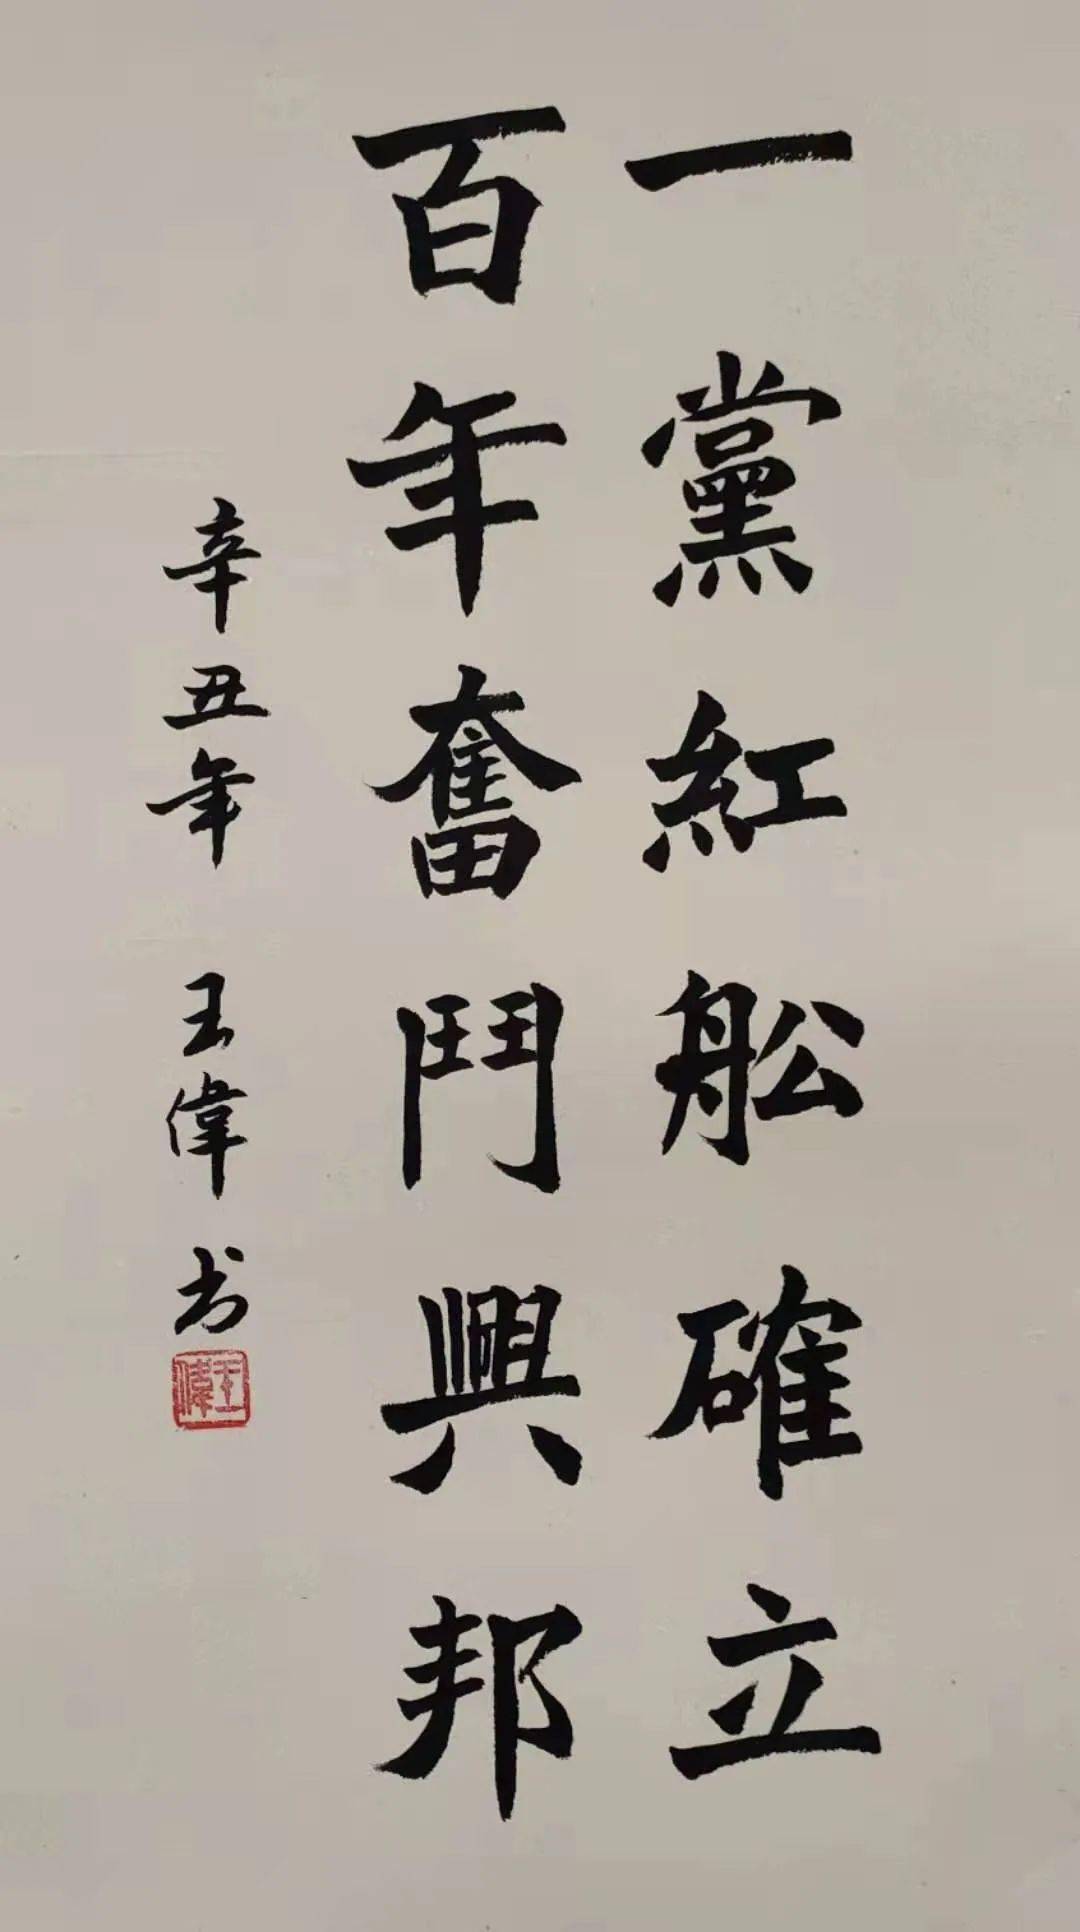 一黨紅舩確立
百年奮鬥興邦
辛丑年 王偉书
王偉